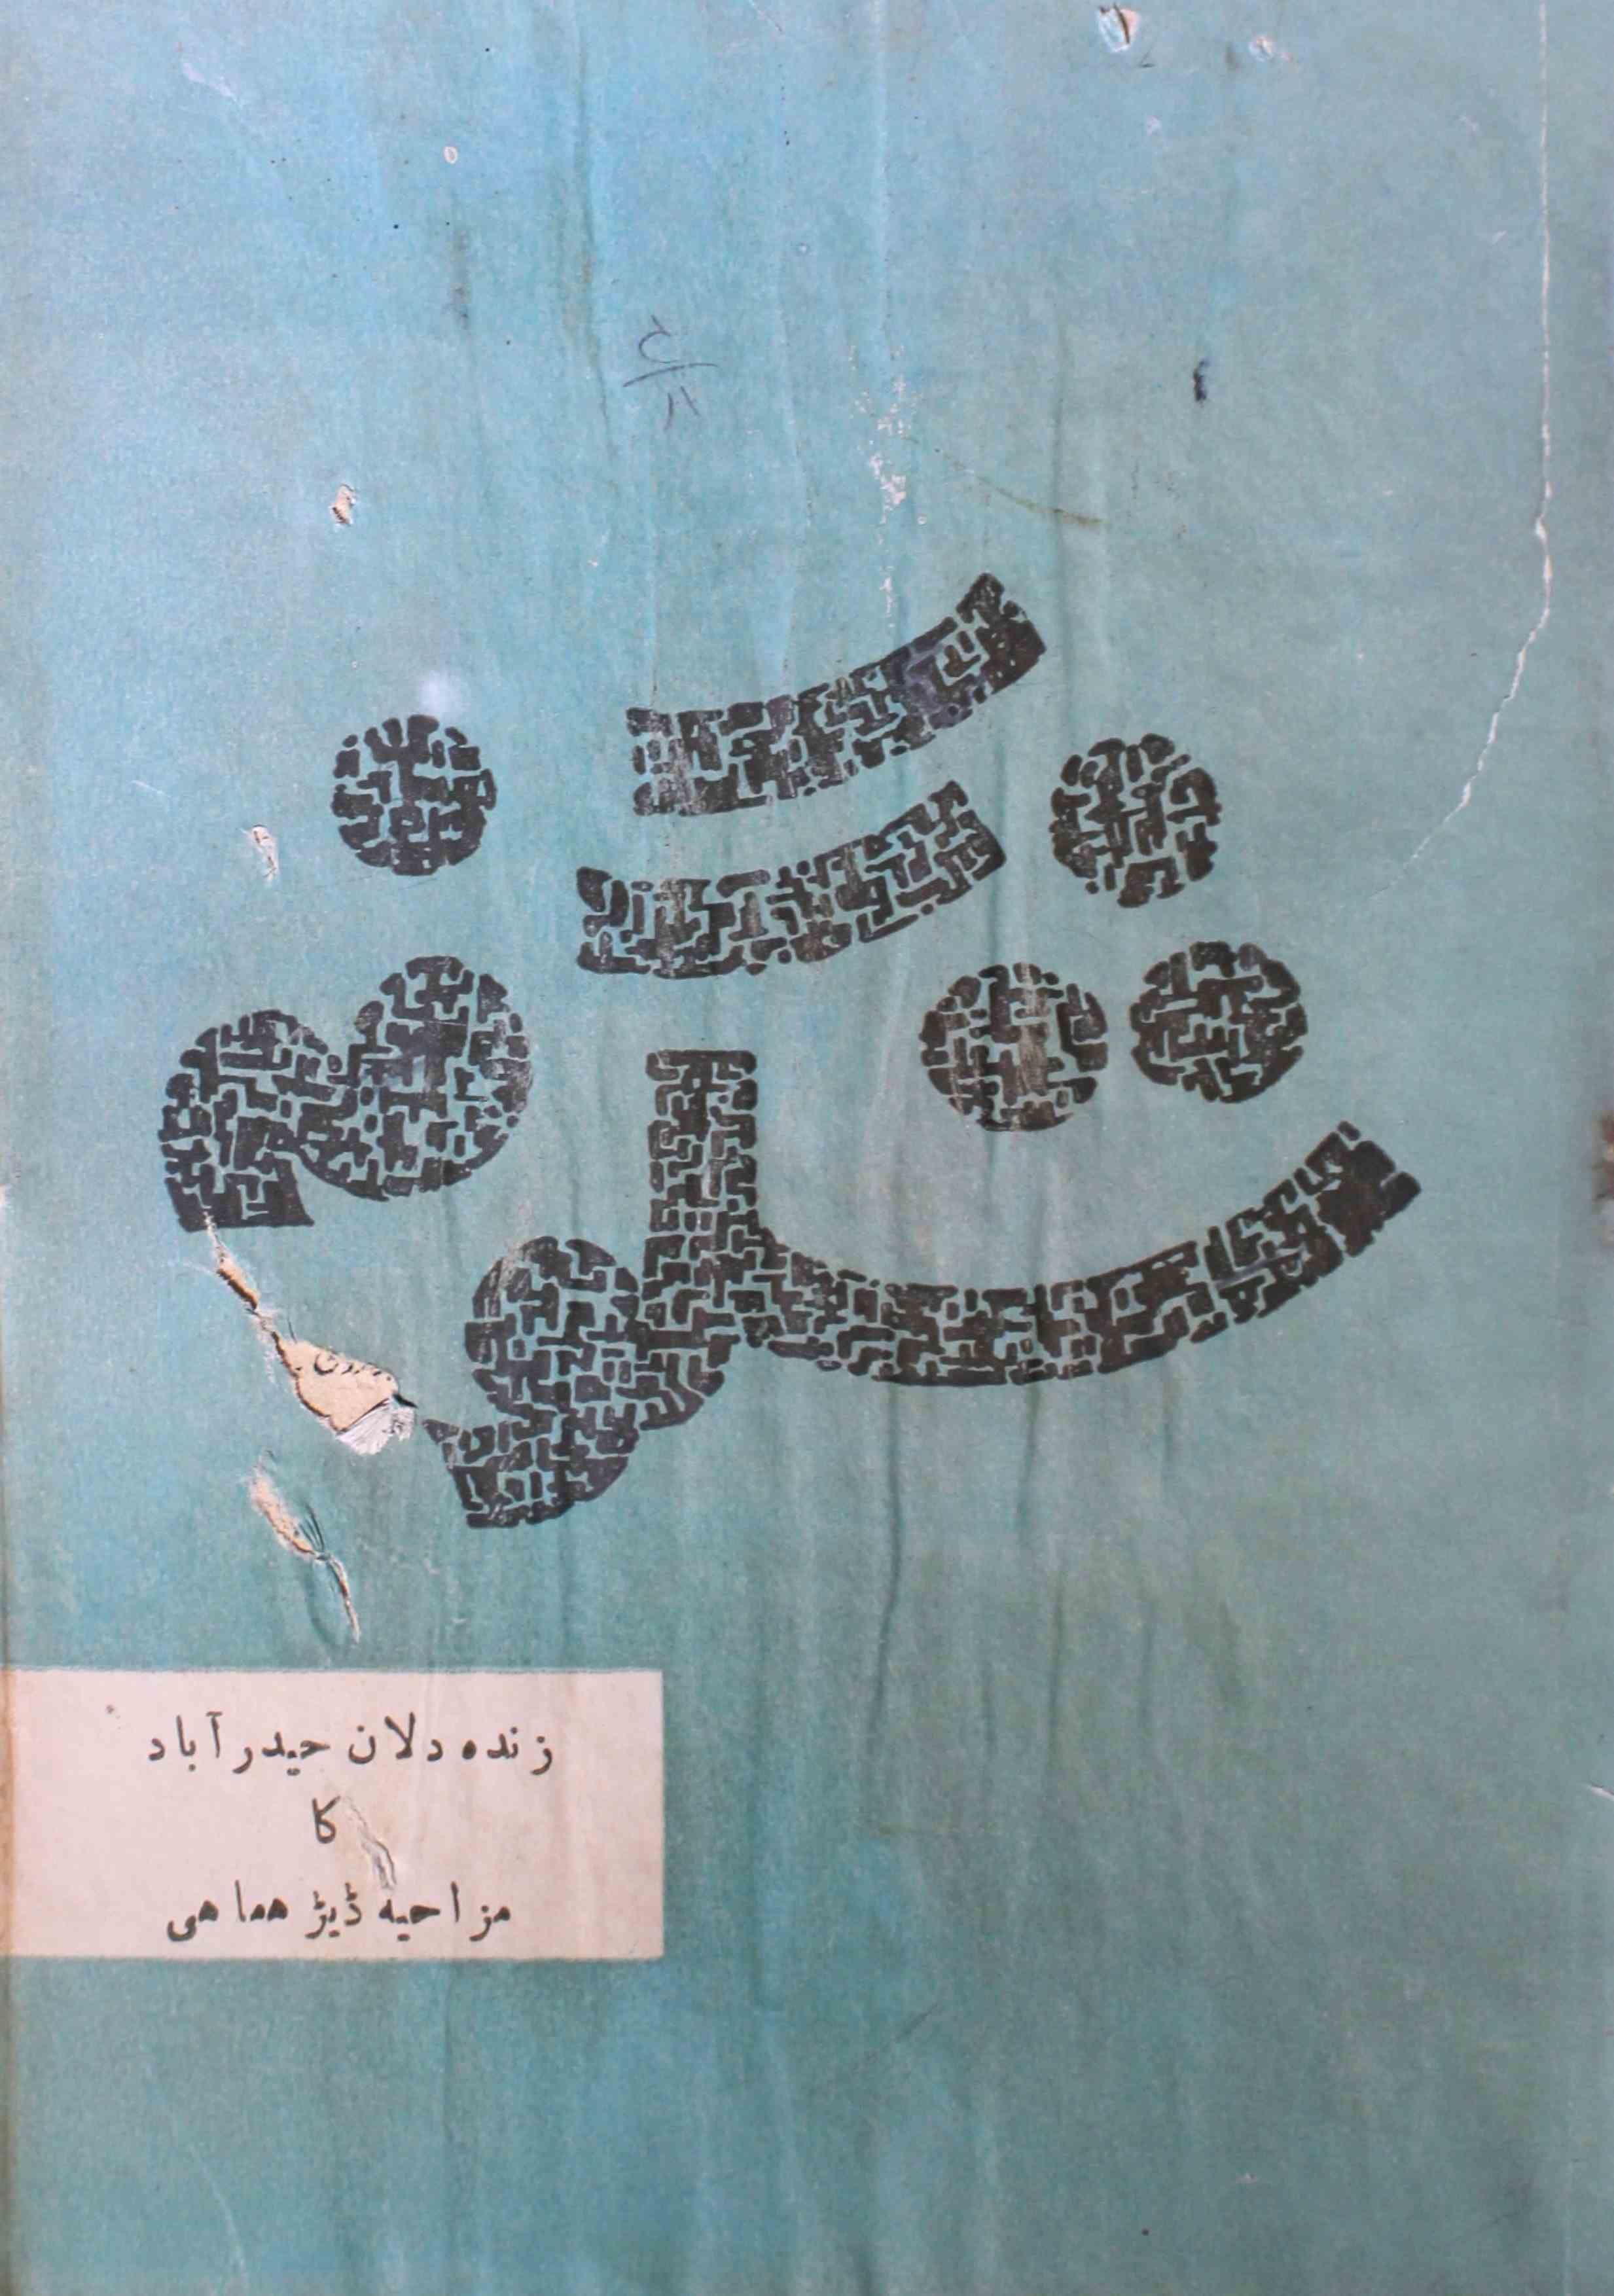 شگوفہ
زندہ دلان حیدرآباد
کا
مزاحیہ ڈیڑھ ماہی